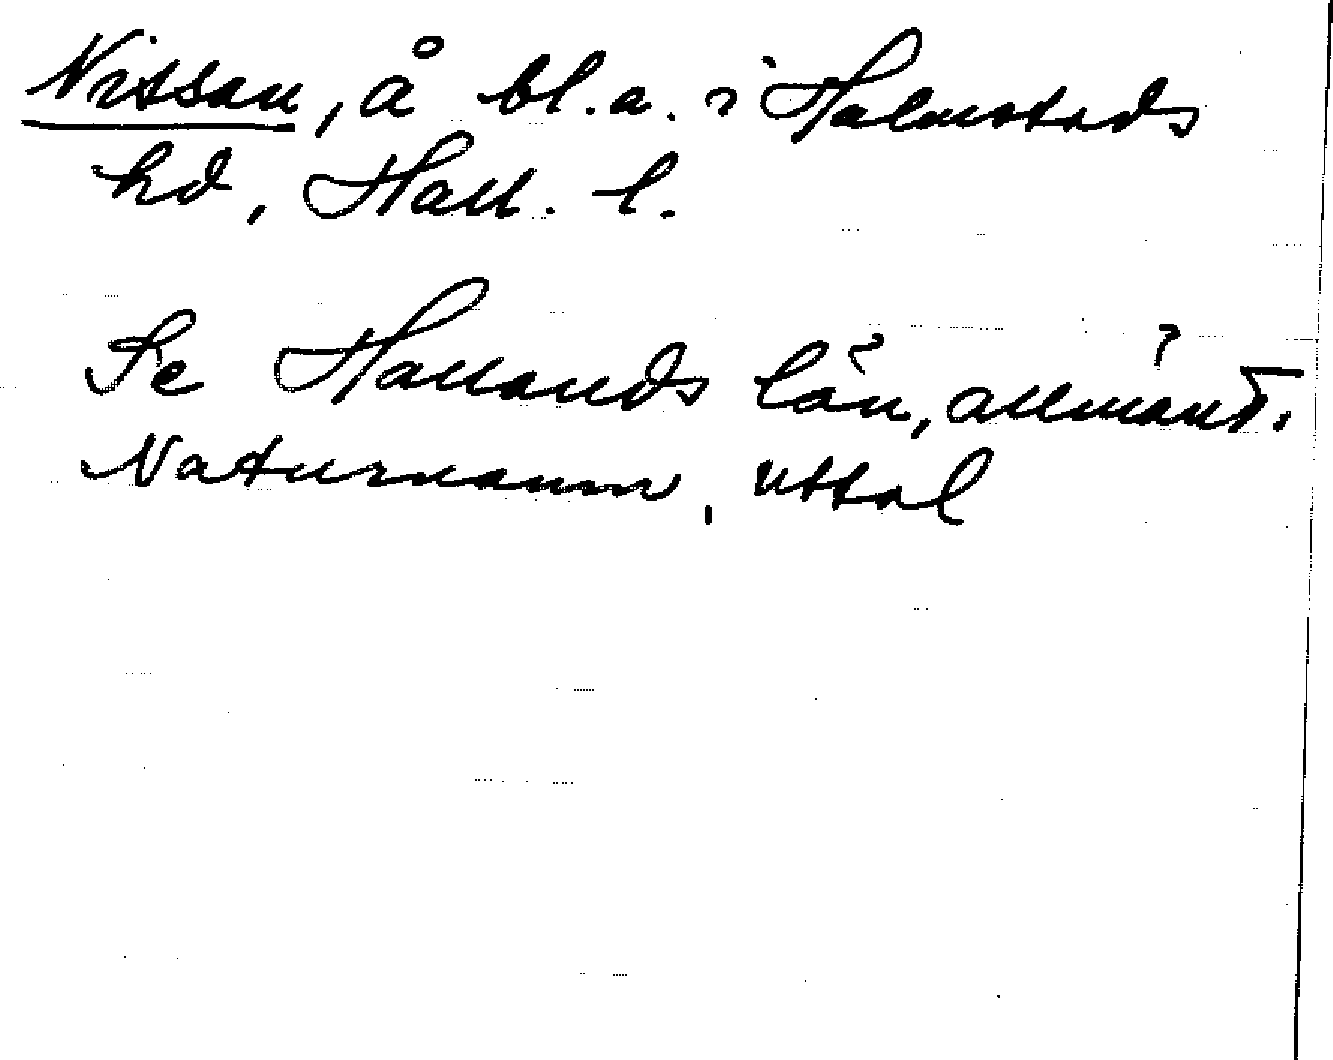 Nissan, å bl.a. i Halmstads
hd, Hall. l.
Se Hallands län, allmänt.
Naturnamn, uttal